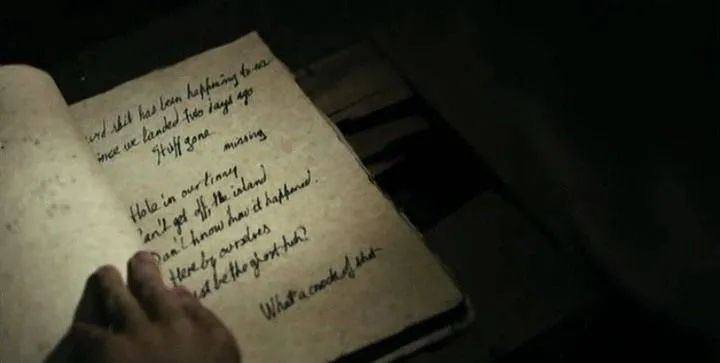 shit has been happening to us
since we landed two days ago
Stuff gone missing
Hole in our
can't get off the island
Don't know how it happened.
Here by ourselves
must be the ghost huh?
What a crock of shit